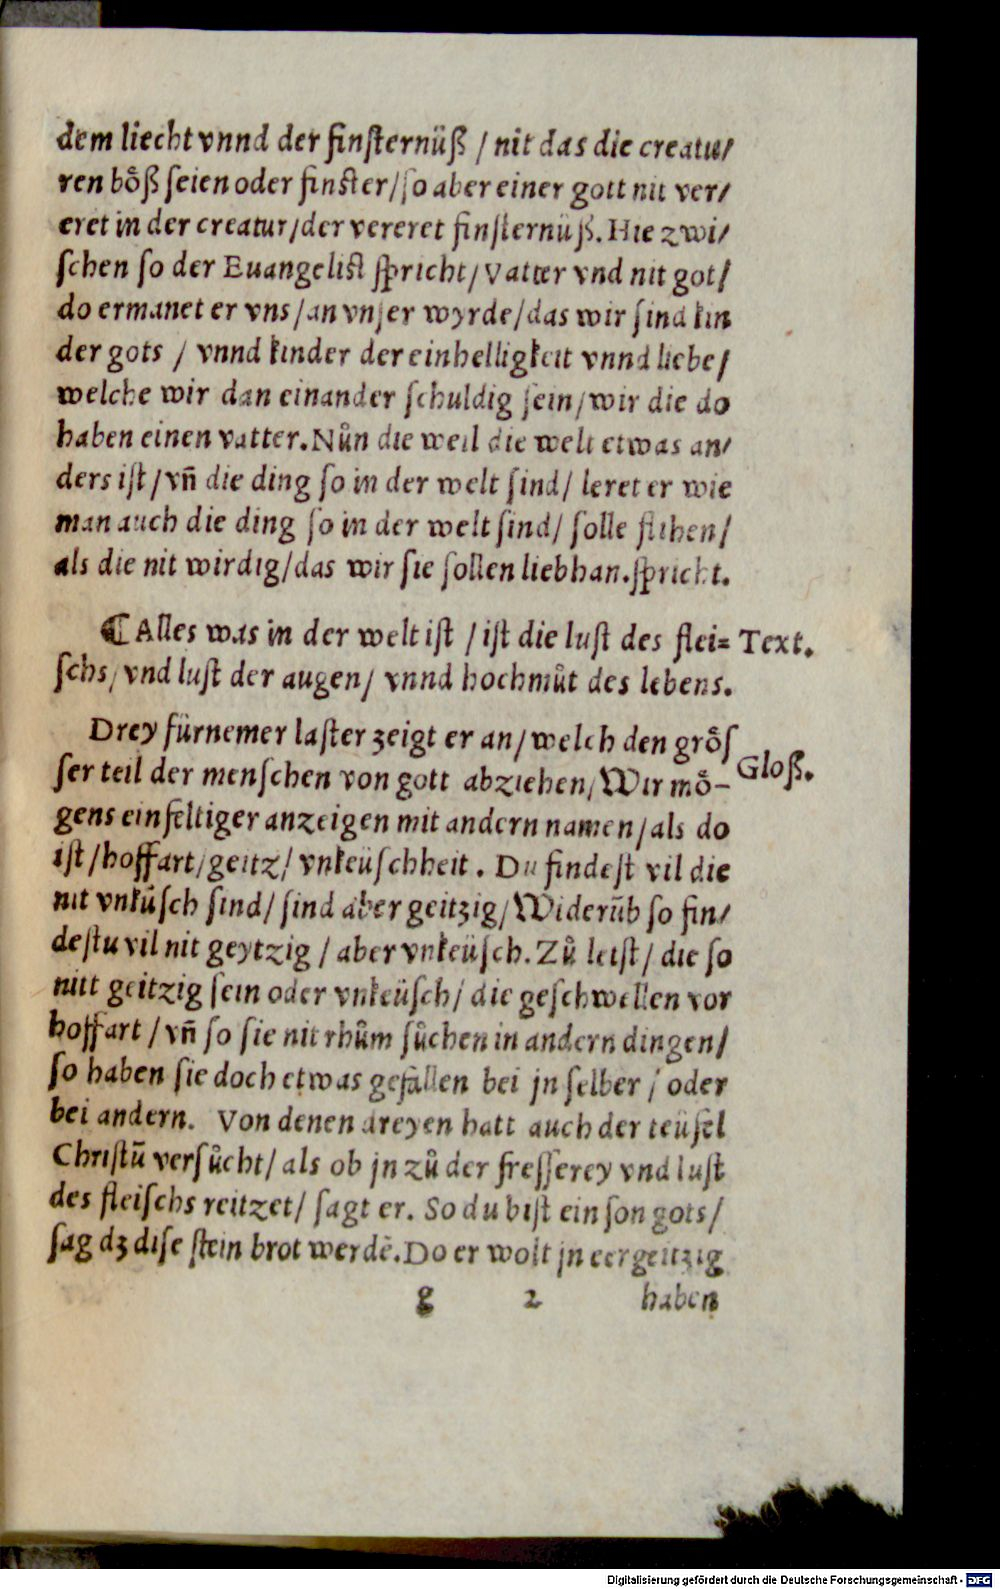 dem liecht vnnd der finsternüß / nit das die creatu/
ren bo̊ß seien oder finster/so aber einer gott nit ver/
eret in der creatur/der vereret finsternüß. Hie zwi/
schen so der Euangelist spricht/Vatter vnd nit got/
do ermanet er vns/an vnser wyrde/das wir sind kin
der gots / vnnd kinder der einhelligkeit vnnd liebe/
welche wir dan einander schuldig sein/wir die do
haben einen vatter. Nůn die weil die welt etwas an/
ders ist/vñ die ding so in der welt sind/ leret er wie
man auch die ding so in der welt sind/ solle flihen/
als die nit wirdig/das wir sie sollen liebhan. spricht.
¶ Alles was in der welt ist / ist die lust des flei= Text.
schs/vnd lust der augen/ vnnd hochmůt des lebens.
Drey fürnemer laster zeigt er an/welch den gro̊s
ser teil der menschen von gott abziehen/Wir mo̊- Gloß.
gens einfeltiger anzeigen mit andern namen/als do
ist/hoffart/geitz/ vnkeüschheit. Du findest vil die
nit vnkůsch sind/ sind aber geitzig/Widerūb so fin/
destu vil nit geytzig / aber vnkeüsch. Zů letst/ die so
nitt geitzig sein oder vnkeüsch/ die geschwellen vor
hoffart / vñ so sie nit rhům sůchen in andern dingen/
so haben sie doch etwas gefallen bei jn selber / oder
bei andern. Von denen dreyen hatt auch der teüfel
Christū versůcht/ als ob jn zů der fresserey vnd lust
des fleischs reitzet/ sagt er. So du bist ein son gots/
sag dz dise stein brot werdē. Do er wolt jn eergeitzig
g 2 haben
Digitalisierung gefördert durch die Deutsche Forschungsgemeinschaft - DFG